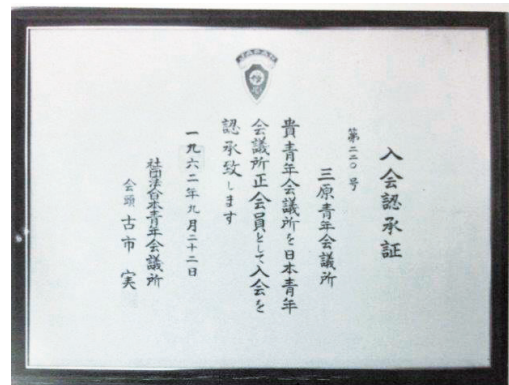 JAPAN
入会認承証
第二二〇号
三原青年会議所
貴青年会議所を日本青年
会議所正会員として入会を
認承致します
一九六二年九月二十二日
社団法人日本青年会議所
会頭 古市 実